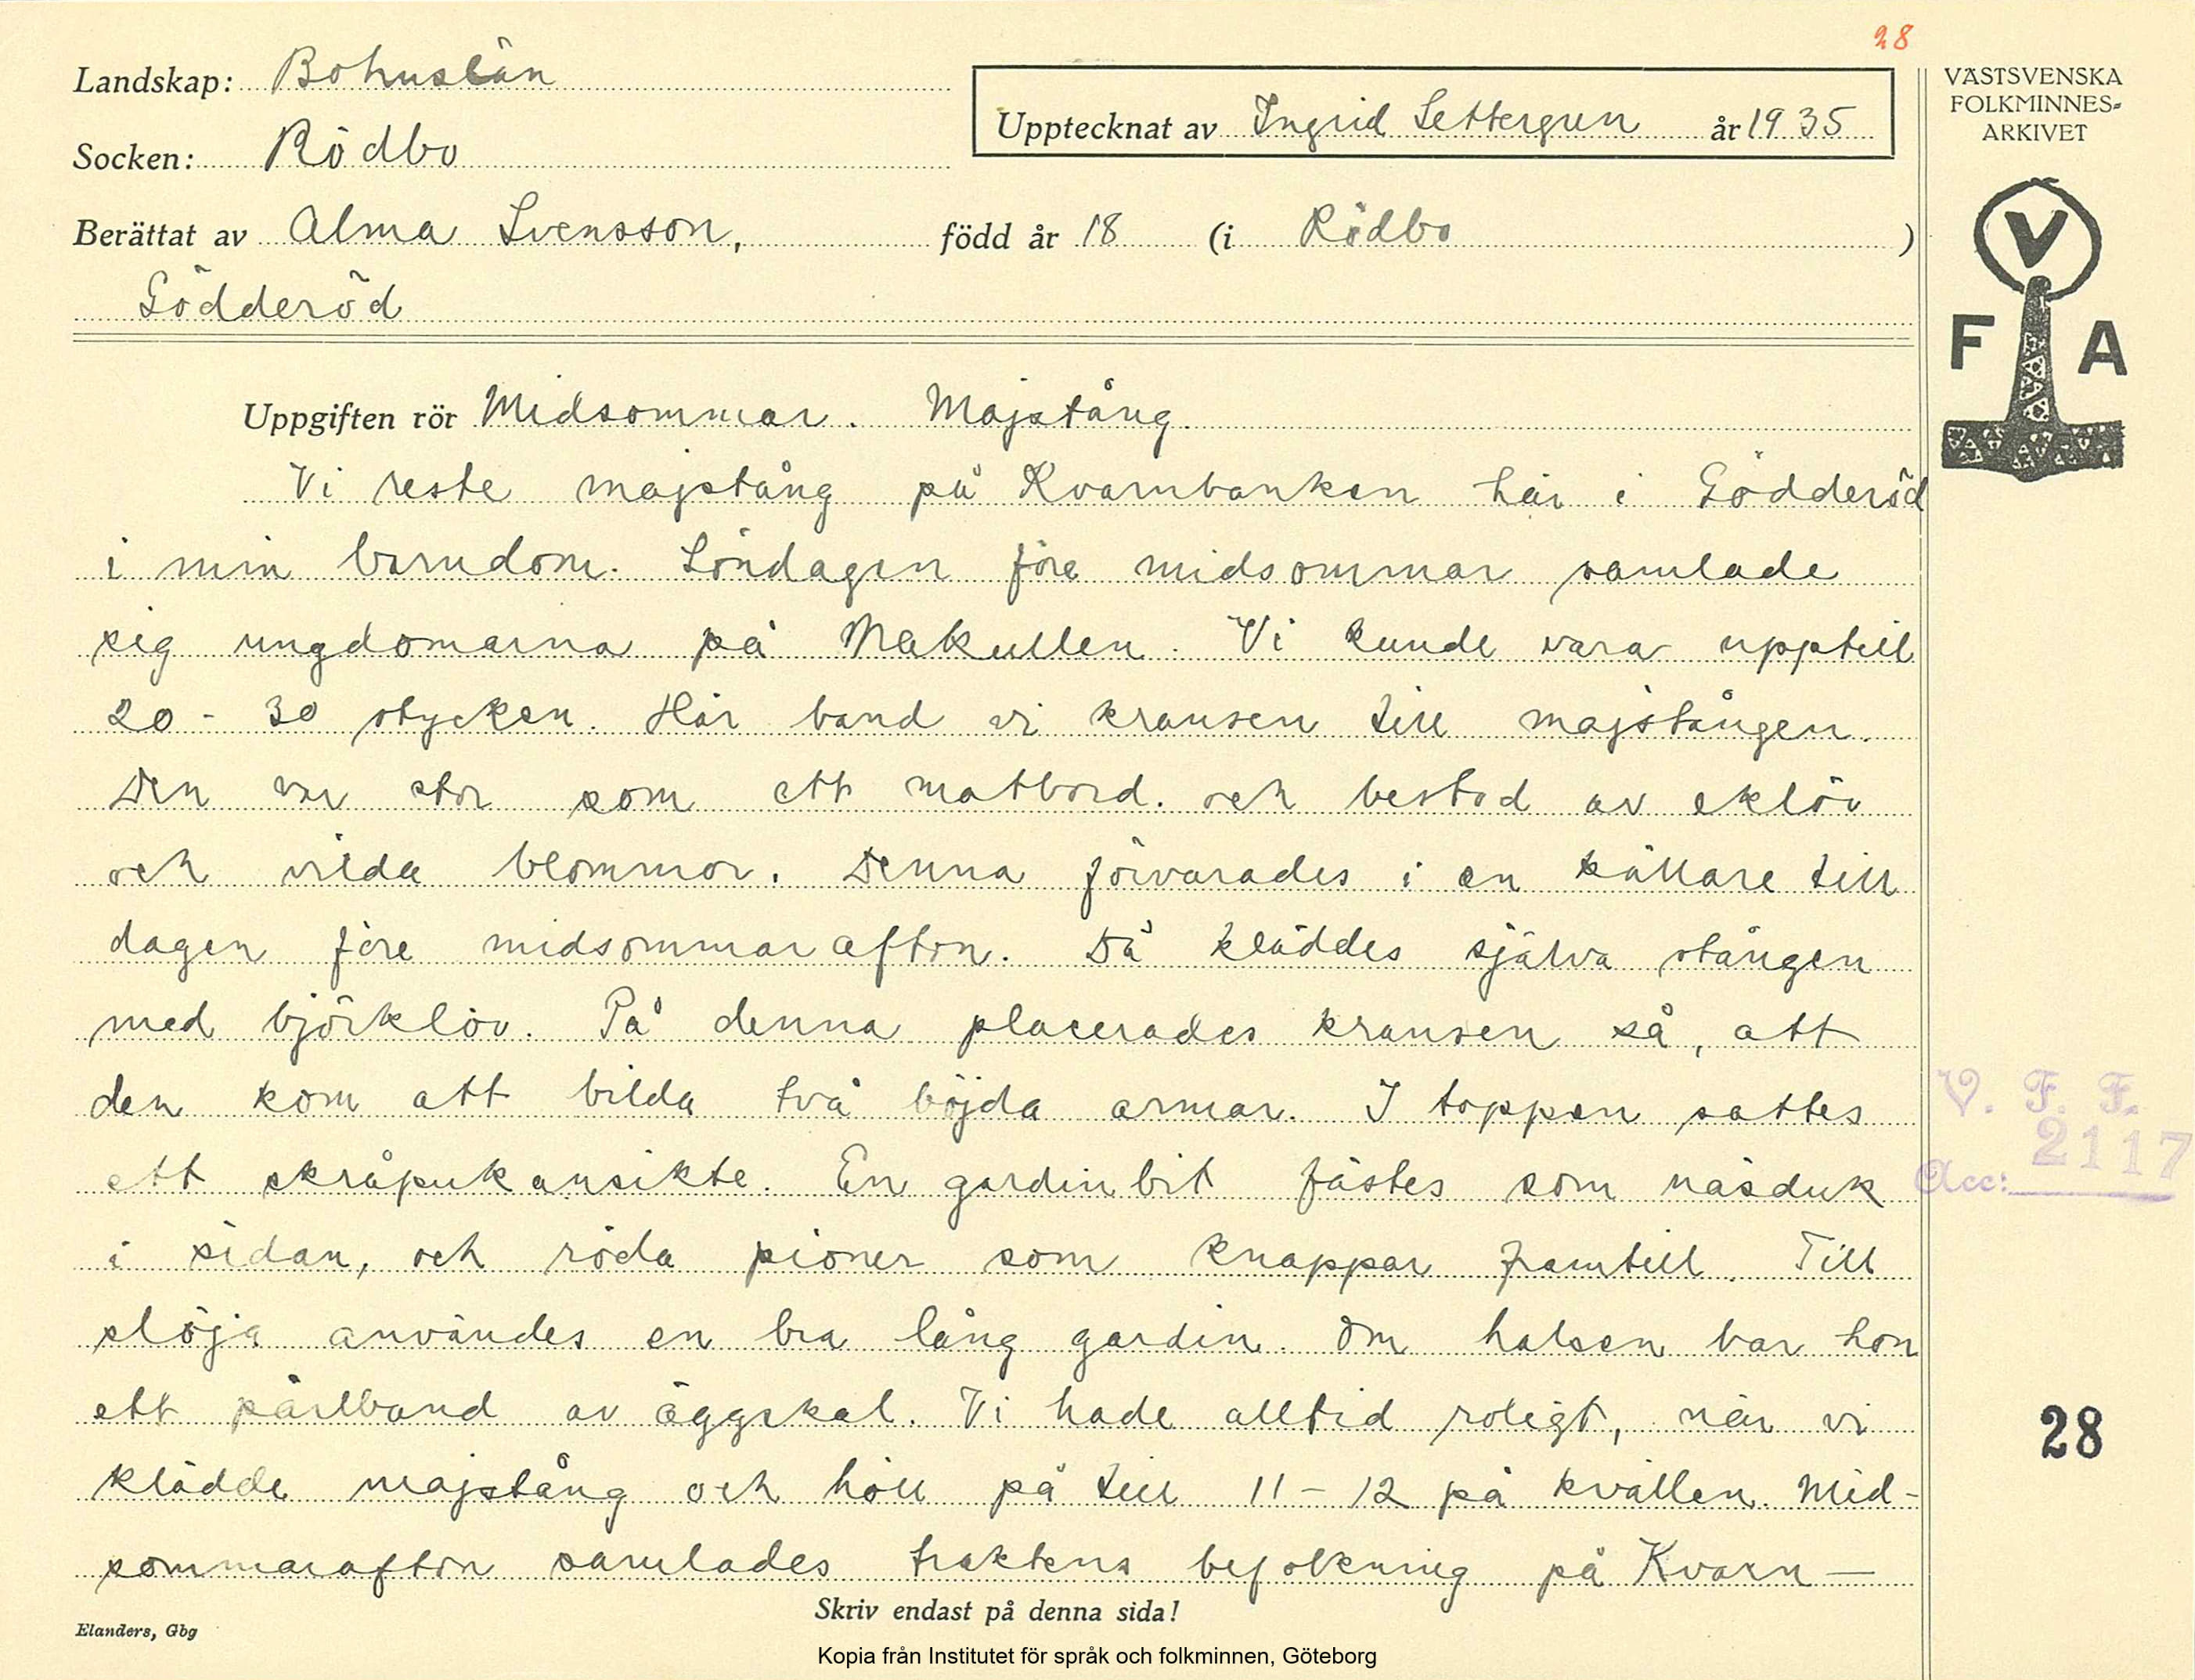 28
Landskap: Bohuslän
Socken: Rödbo
Upptecknat av Ingrid Settergren år 1935
Berättat av Alma Svensson, född år 18 (i Rödbo )
Gödderöd
VÄSTSVENSKA
FOLKMINNES-
ARKIVET
V
F A
Uppgiften rör Midsommar. Majstång.
Vi reste majstång på Kvarnbanken här i Gödderöd
i min barndom. Söndagen före midsommar samlade
sig ungdomarna på Makullen. Vi kunde vara upptill
20 - 30 stycken. Här band vi kransen till majstången.
Den var stor som ett matbord. och bestod av eklöv
och vilda blommor. Denna förvarades i en källare till
dagen före midsommarafton. Då kläddes själva stången
med björklöv. På denna placerades kransen så, att
den kom att bilda två böjda armar. I toppen sattes
ett skråpukansikte. En gardinbit fästes som näsduk
i sidan, och röda pioner som knappar framtill. Till
slöja användes en bra lång gardin. Om halsen bar hon
ett pärlband av äggskal. Vi hade alltid roligt, när vi
klädde majstång och höll på till 11 - 12 på kvällen. Mid-
sommarafton samlades traktens befolkning på Kvarn-
V. F. F.
Acc: 2117
28
Skriv endast på denna sida!
Elanders, Gbg
Kopia från Institutet för språk och folkminnen, Göteborg